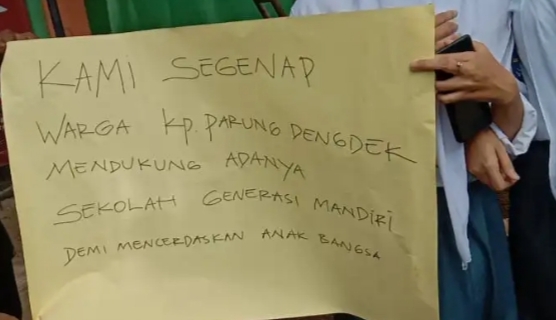 KAMI SEGENAP
WARGA KP. PARUNG DENGDEK
MENDUKUNG ADANYA
SEKOLAH GENERASI MANDIRI
DEMI MENCERDASKAN ANAK BANGSA